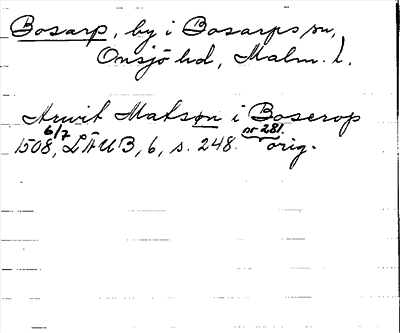 Bosarp, by i Bosarps sn,
Onsjö hd, Malm. l.
Arwit Matsøn i Boserop
1508 6/7, LÄUB, 6, s. 248. nr 281. orig.